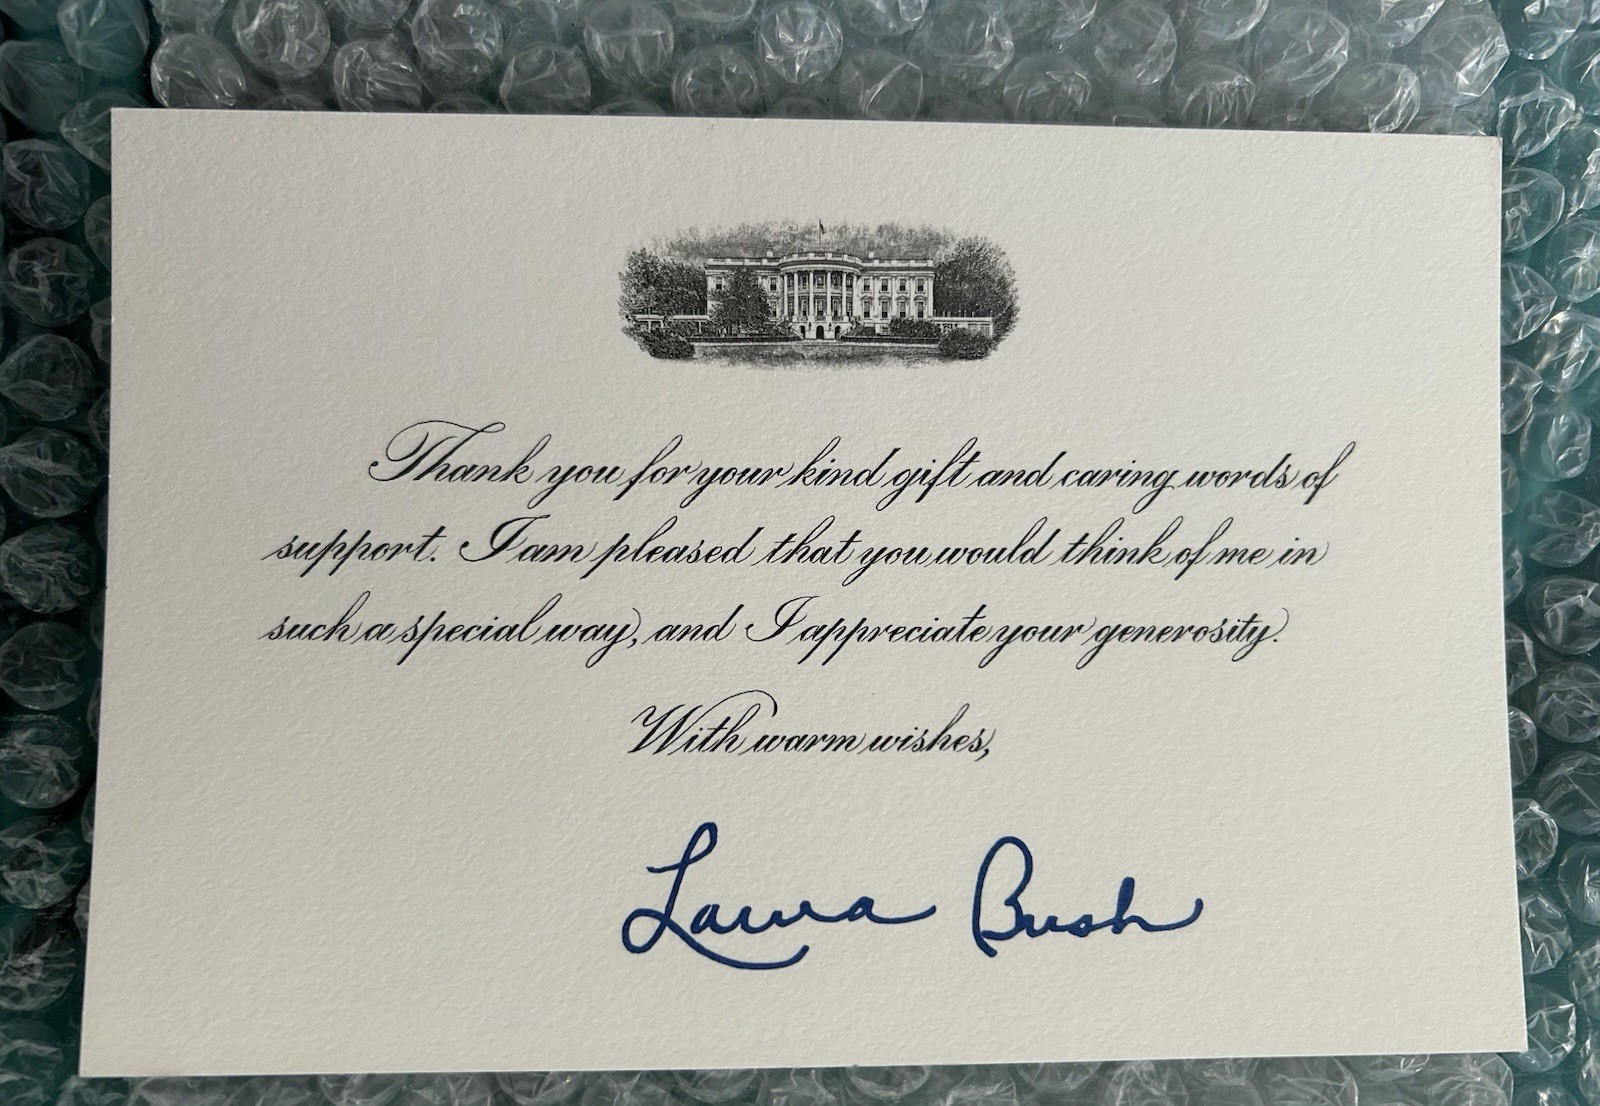 Thank you for your kind gift and caring words of
support. I am pleased that you would think of me in
such a special way, and I appreciate your generosity.
With warm wishes,
Laura Bush